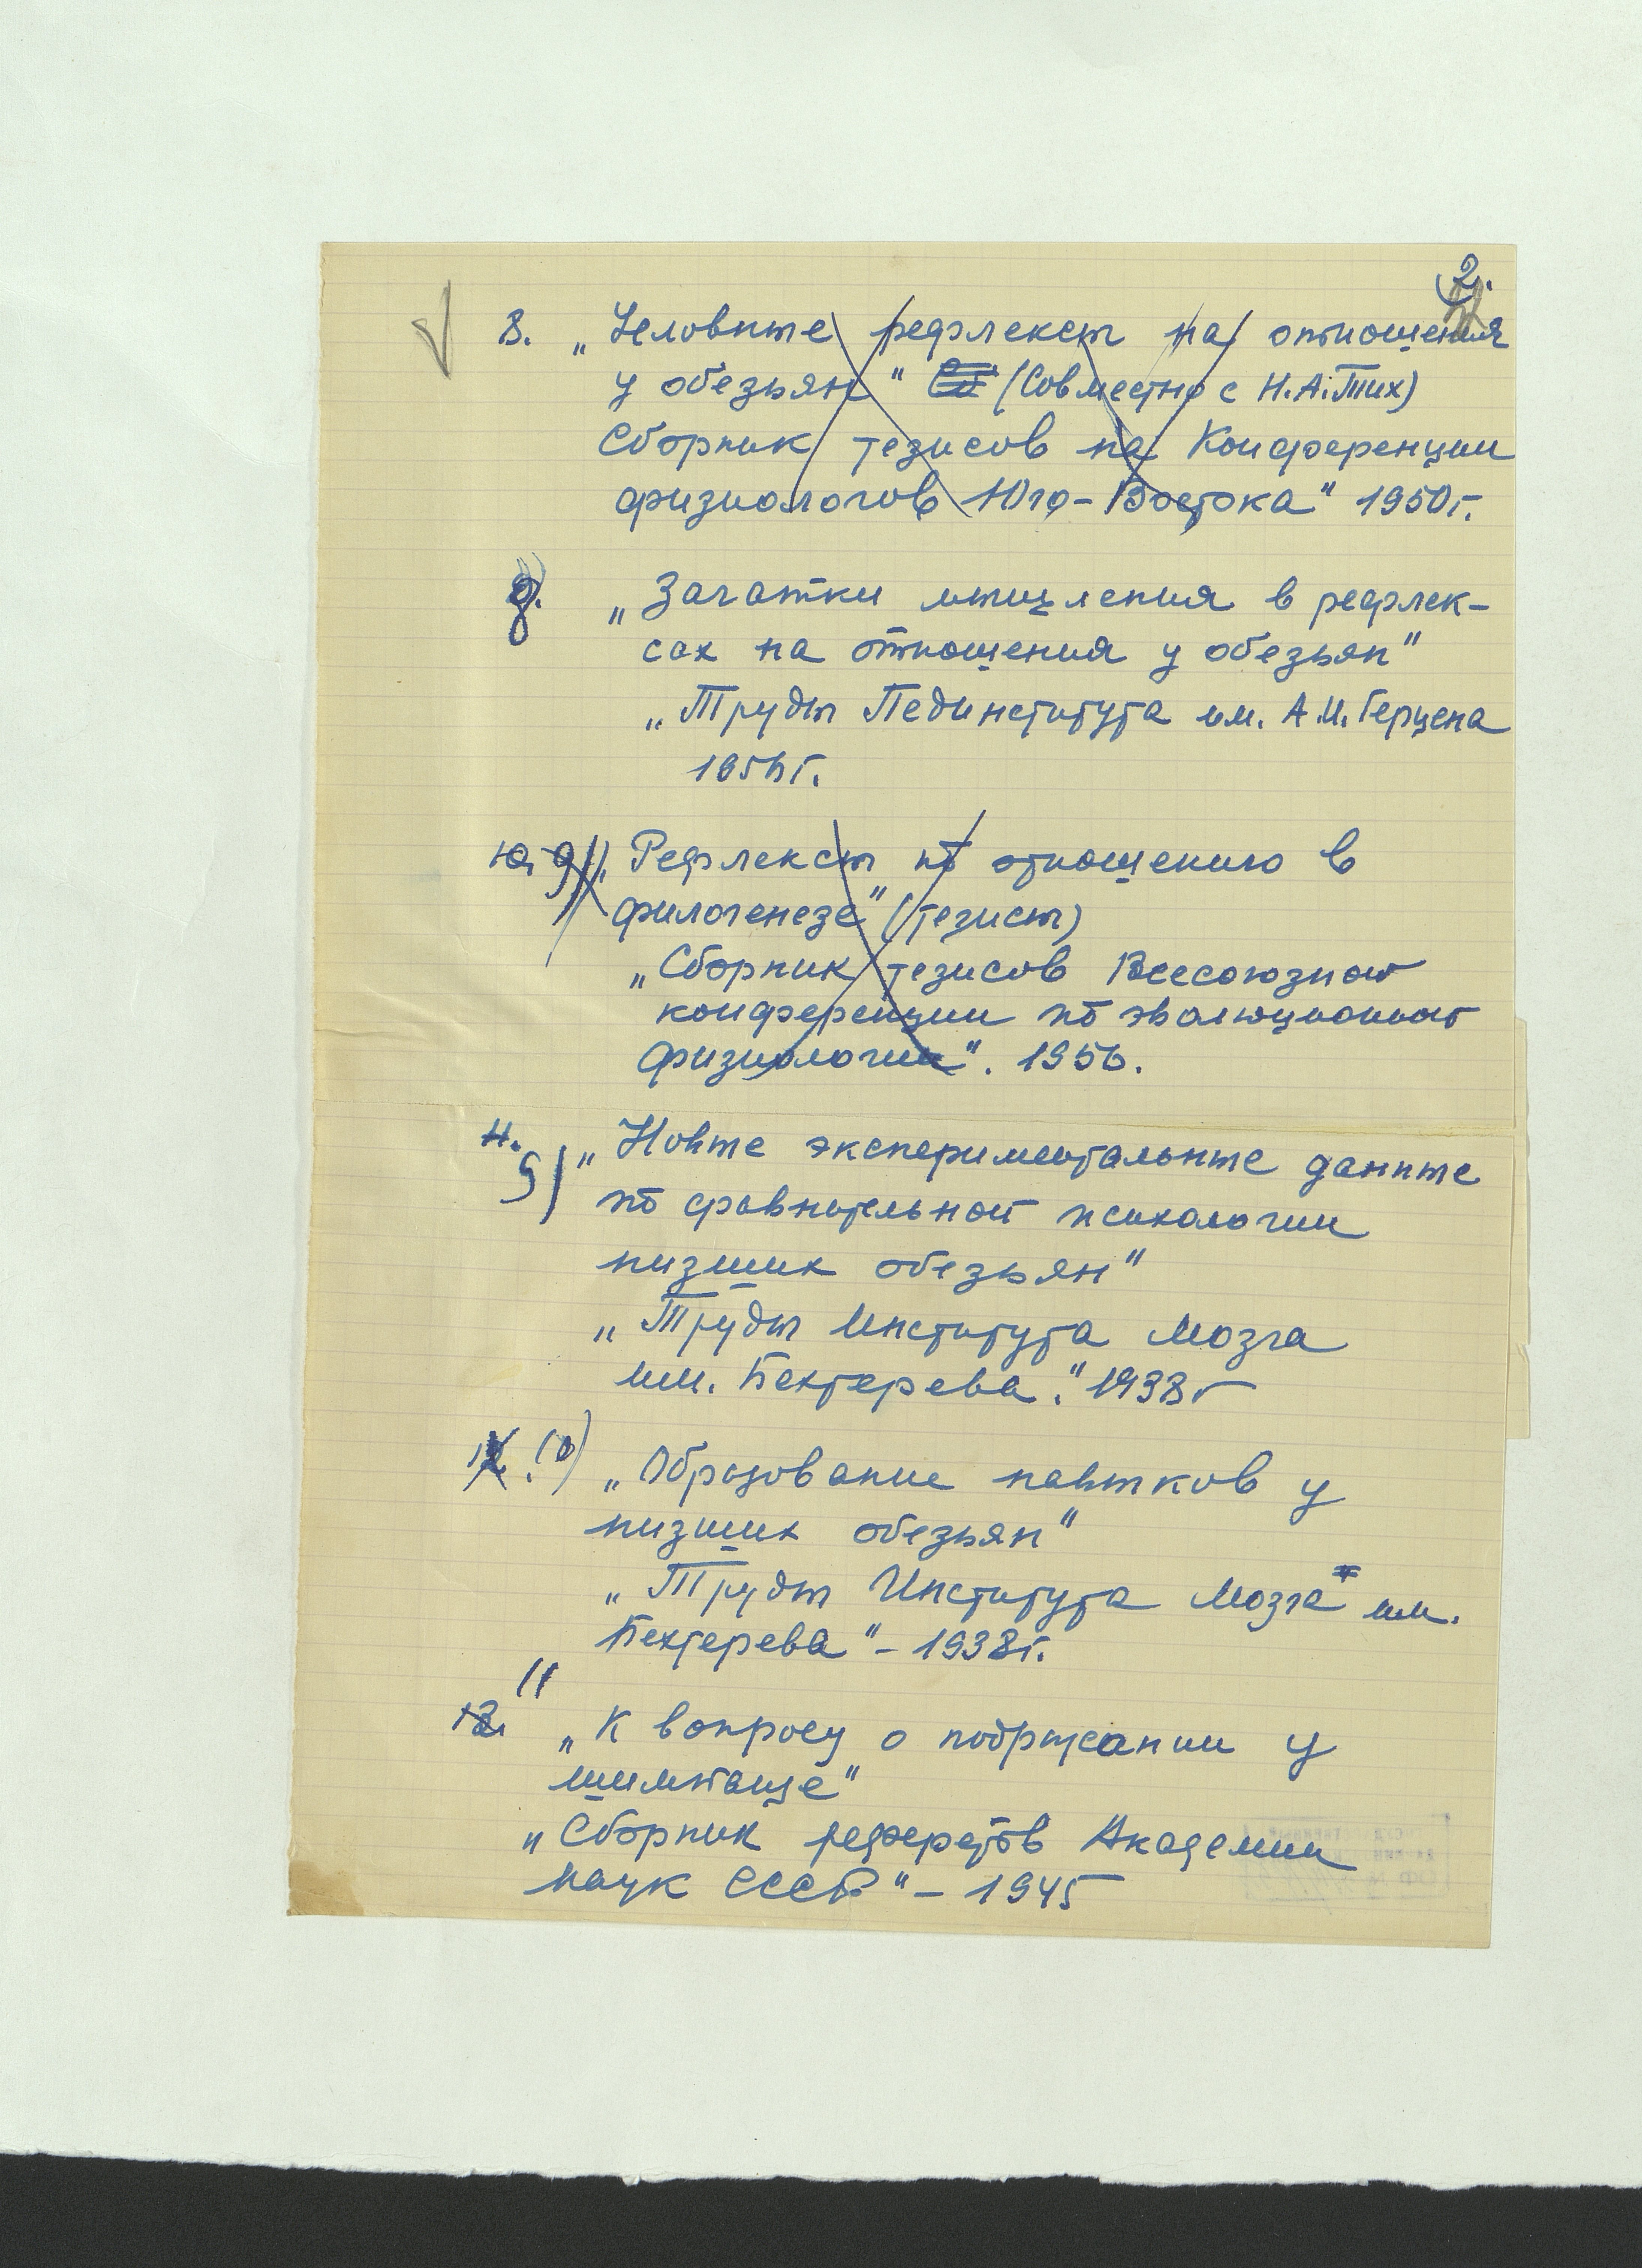 2.
8. „Условные рефлексы на отношения
у обезьян" (Совместно с Н.А.Тих)
Сборник тезисов на Конференции
физиологов Юго-Востока" 1950г.
8. „Зачатки мышления в рефлек-
сах на отношения у обезьян"
„Труды Пединститута им. А.И.Герцена
195 г.
10. 9) „Рефлексы по отношению в
филогенезе" (тезисы)
„Сборник тезисов Всесоюзной
конференции по эволюционной
физиологии". 1956.
11. 9) „Новые экспериментальные данные
по сравнительной психологии
низших обезьян"
„Труды Института Мозга
им. Бехтерева." 1938г
12. 10) „Образование навыков у
низших обезьян"
„Труды Института Мозга им.
Бехтерева" – 1938г.
11
12. „К вопросу о подражании у
шимпанзе"
„Сборник рефератов Академии
Наук СССР" – 1945